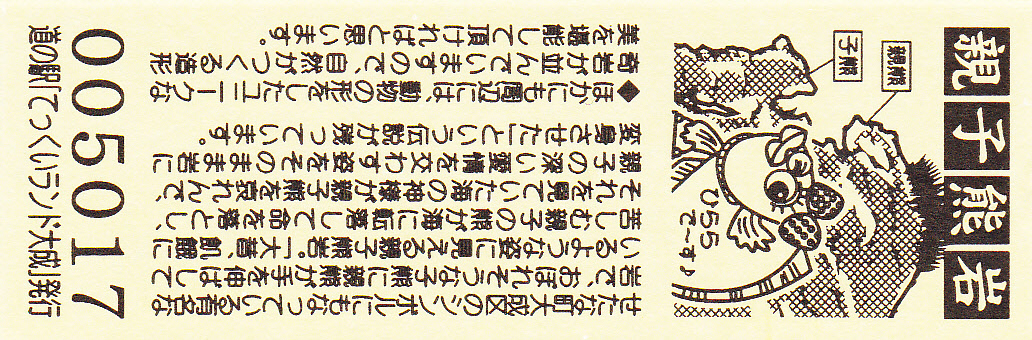 親子熊岩
親熊
子熊
ひらら
で〜す♪
せたな町大成区のシンボルにもなっている有名な
岩で、おぼれそうな子熊に親熊が手を伸ばして
いるような姿に見える親子熊岩。「大昔、飢饉に
苦しむ親子の熊が海に転落して命を落とし、
それを見ていた海の神様が親子熊を哀れんで、
親子の深い愛情を交わす姿をそのまま岩に
変身させた」という伝説が残っています。
◆ほかにも周辺には、動物の形をしたユニークな
奇岩が並んでいますので、自然がつくる造形
美を堪能して頂ければと思います。
005017
道の駅「てっくいランド大成」発行